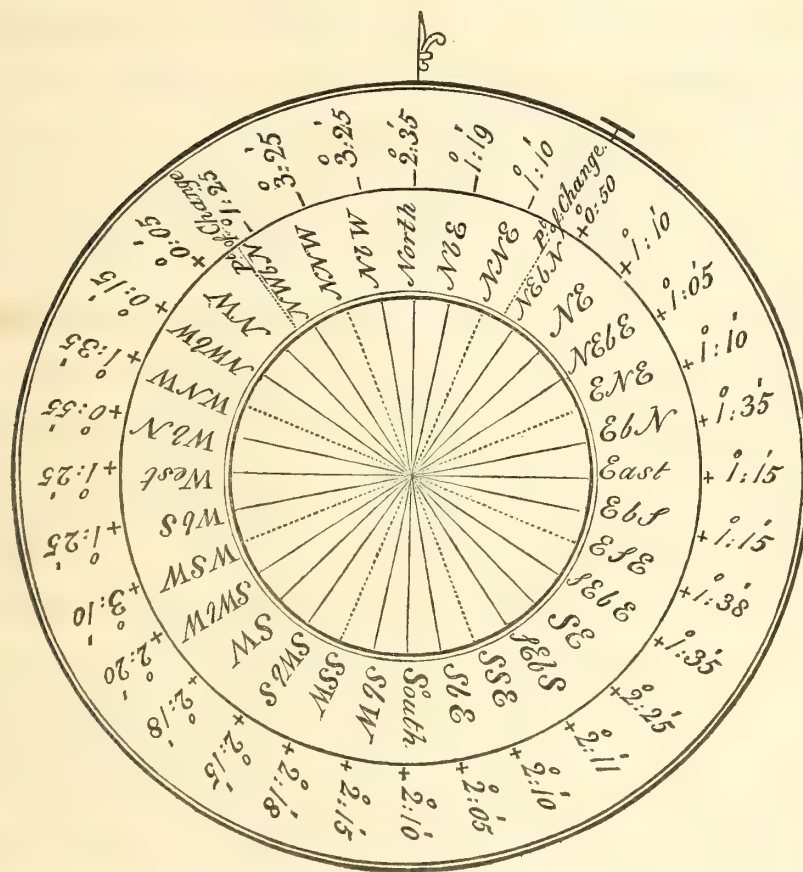 North
−2°:35′
NbE
−1°:19′
NNE
−1°:10′
Pt. of Change.
NEbN
+0°:50′
NE
+1°:10′
NEbE
+1°:05′
ENE
+1°:10′
EbN
+1°:35′
East
+1°:15′
EbS
+1°:15′
ESE
+1°:38′
SEbE
+1°:35′
SE
+2°:25′
SEbS
+2°:11′
SSE
+2°:10′
SbE
+2°:05′
South
+2°:10′
SbW
+2°:15′
SSW
+2°:18′
SWbS
+2°:15′
SW
+2°:18′
SWbW
+2°:20′
WSW
+3°:10′
WbS
+1°:25′
West
+1°:25′
WbN
+0°:55′
WNW
+1°:35′
NWbW
+0°:15′
NW
+0°:05′
Pt. of Change
NWbN
−1°:25′
NNW
−3°:25′
NbW
−3°:25′